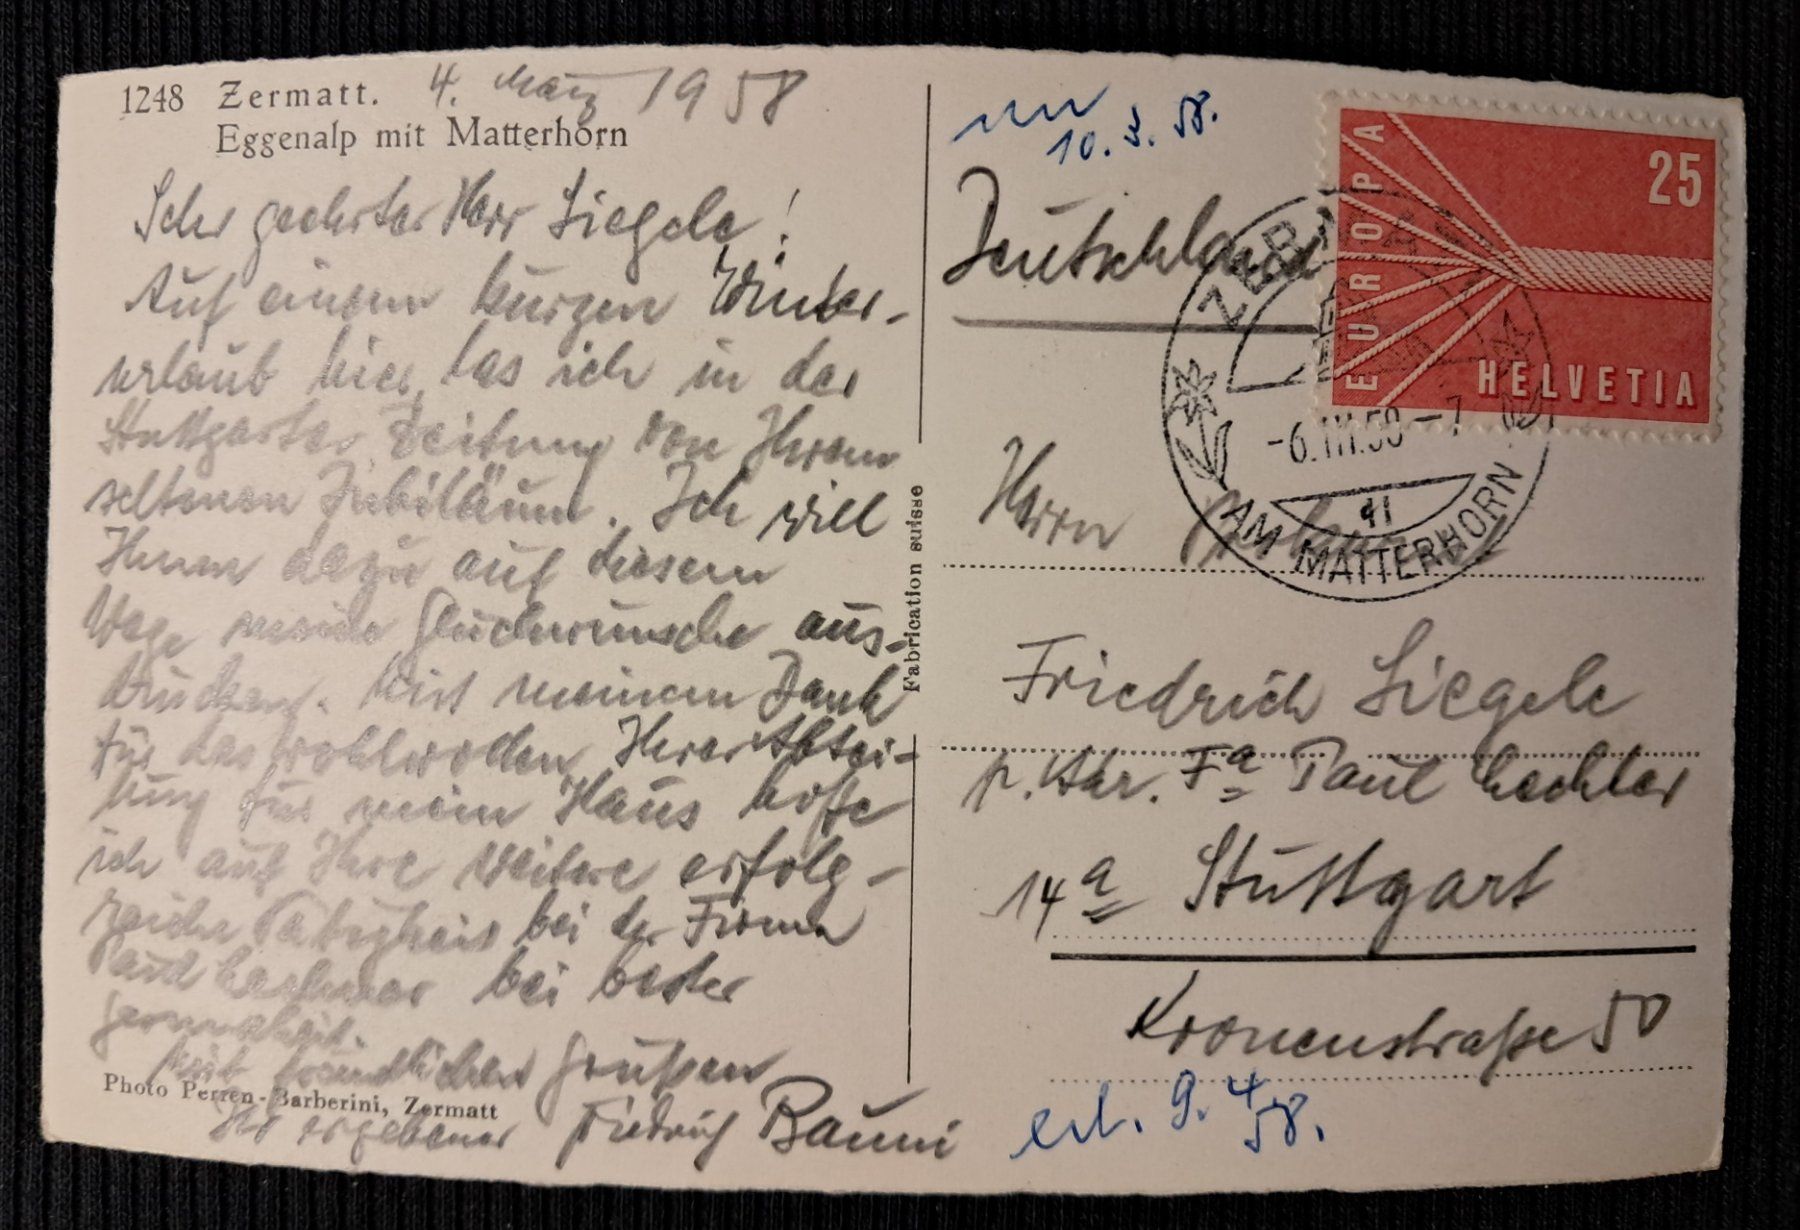 1248 Zermatt. 4. März 1958
Eggenalp mit Matterhorn
Sehr geehrter Herr Siegele!
Auf einem kurzen Winter-
urlaub hier, las ich in der
Stuttgarter Zeitung von Ihrem
seltenen Jubiläum. Ich will
Ihnen dazu auf diesem
Wege meine Glückwünsche aus-
drücken. Mit meinem Dank
für das Wohlwollen Ihrer Abtei-
lung für mein Haus hoffe
ich auf Ihre weitere erfolg-
reiche Tätigkeit bei der Firma
Paul Lechler bei bester
Gesundheit.
Mit freundlichen Grüßen
Photo Perren-Barberini, Zermatt
Ihr ergebener Friedrich
Fabrication suisse
10. 3. 58.
Deutschland
EUROPA
25
HELVETIA
ZERMATT
-6.III.58-7
AM MATTERHORN
Herrn
Friedrich Siegele
p. Adr. Fa Paul Lechler
14a Stuttgart
Kronenstraße 50
erl. 9. 4. 58.